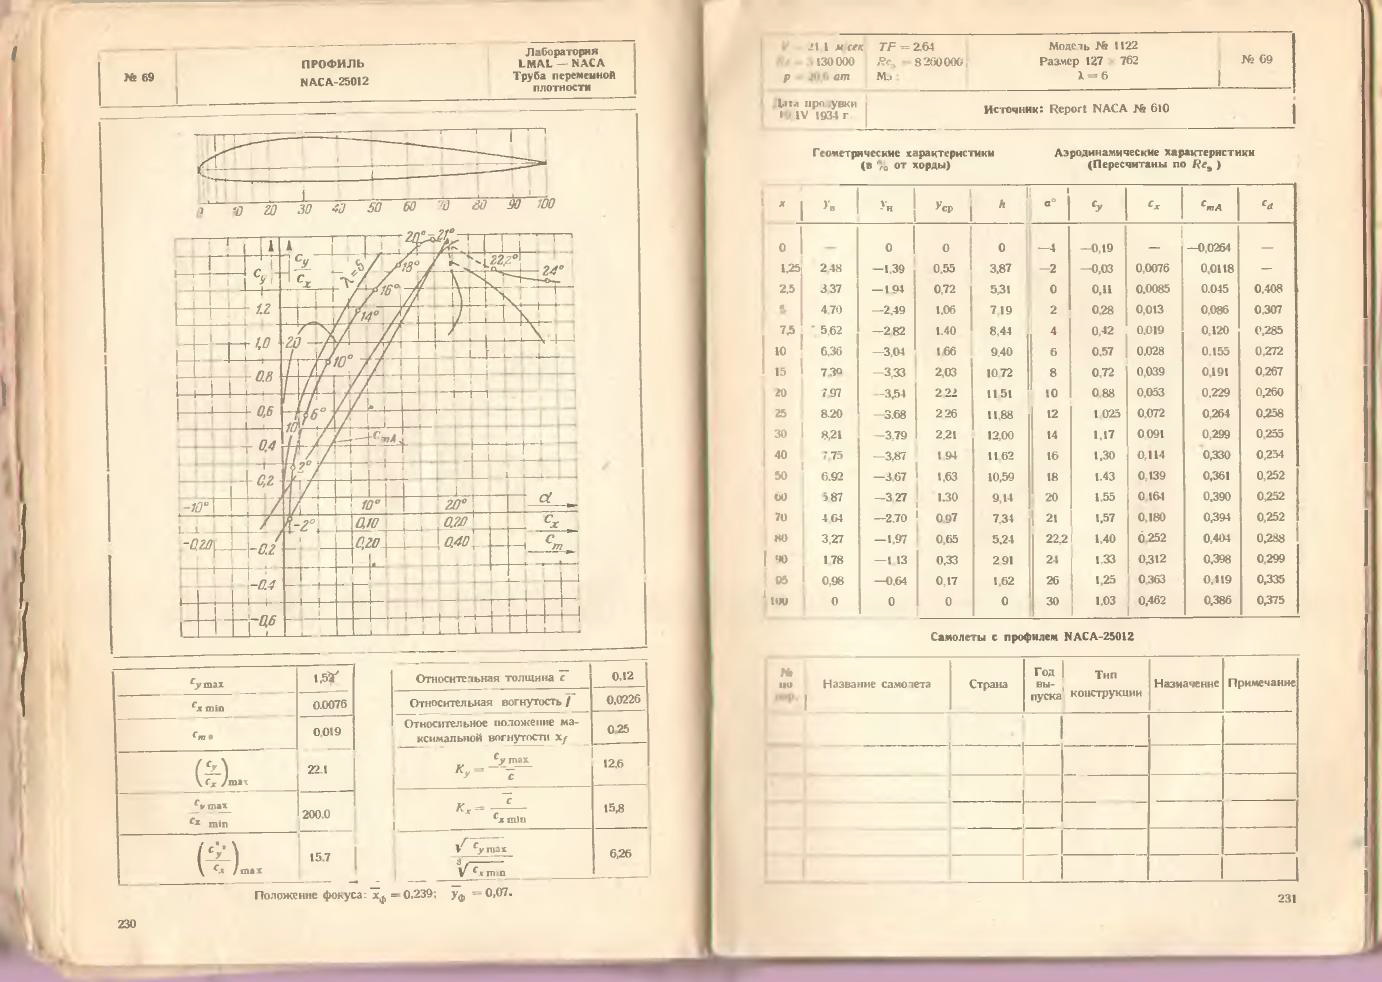 № 69
ПРОФИЛЬ
NACA-25012
Лаборатория
LMAL — NACA
Труба переменной
плотности
0 10 20 30 40 50 60 70 80 90 100
20° 21°
22,2°
24°
18°
16°
14°
10°
6°
2°
-2°
λ=6
Cy
Cy
Cx
1.2
1,0 20
0.8
0,6
10
0.4
CmA
0,2
-10° 10° 20° α
0,10 0,20 Cx
-0.20 -0.2 0,20 0,40 Cm
-0.4
-0,6
cy max
cx min 0.0076
cm o 0,019
(cy/cx) max 22.1
cy max / cx min 200.0
15.7
Относительная толщина c̅ 0.12
Относительная вогнутость f̅ 0,0226
Относительное положение ма-
ксимальной вогнутости x̅f 0,25
Ky = cy max / c̅ 12,6
Kx = c̅ / cx min 15,8
√cy max / ³√cx min 6,26
Положение фокуса: x̅ф = 0.239; y̅ф = 0,07.
230
21.1 м сек TF = 2.64 Модель № 1122
130 000 Reэ = 8 260 000 Размер 127 × 762 № 69
p ат М₀ : λ = 6
Дата продувки
IV 1934 г Источник: Report NACA № 610
Геометрические характеристики
(в % от хорды)
Аэродинамические характеристики
(Пересчитаны по Reэ)
x yв yн yср h α° cy cx cmA cd
0 — 0 0 0 —4 —0,19 — —0,0264 —
1,25 2,48 —1,39 0,55 3,87 —2 —0,03 0,0076 0,0118 —
2,5 3,37 —1,94 0,72 5,31 0 0,11 0,0085 0.045 0,408
5 4,70 —2,49 1,06 7,19 2 0,28 0,013 0,086 0,307
7,5 5,62 —2,82 1.40 8,44 4 0,42 0,019 0,120 0,285
10 6,36 —3,04 1,66 9,40 6 0,57 0,028 0.155 0,272
15 7,39 —3,33 2,03 10,72 8 0,72 0,039 0,191 0,267
20 7,97 —3,54 2,22 11,51 10 0,88 0,053 0,229 0,260
25 8.20 —3,68 2,26 11,88 12 1,025 0,072 0,264 0,258
30 8,21 —3,79 2,21 12,00 14 1,17 0,091 0,299 0,255
40 7,75 —3,87 1,94 11,62 16 1,30 0,114 0,330 0,254
50 6.92 —3,67 1,63 10,59 18 1.43 0,139 0,361 0,252
60 5,87 —3,27 1.30 9,14 20 1,55 0,164 0,390 0,252
70 4,64 —2.70 0,97 7,34 21 1,57 0,180 0,394 0,252
80 3,27 —1,97 0,65 5,24 22,2 1,40 0,252 0,404 0,288
90 1,78 —1,13 0,33 2,91 24 1,33 0,312 0,398 0,299
95 0,98 —0,64 0,17 1,62 26 1,25 0,363 0,419 0,335
100 0 0 0 0 30 1,03 0,462 0,386 0,375
Самолеты с профилем NACA-25012
№
по
пор. Название самолета Страна Год
вы-
пуска Тип
конструкции Назначение Примечание
231